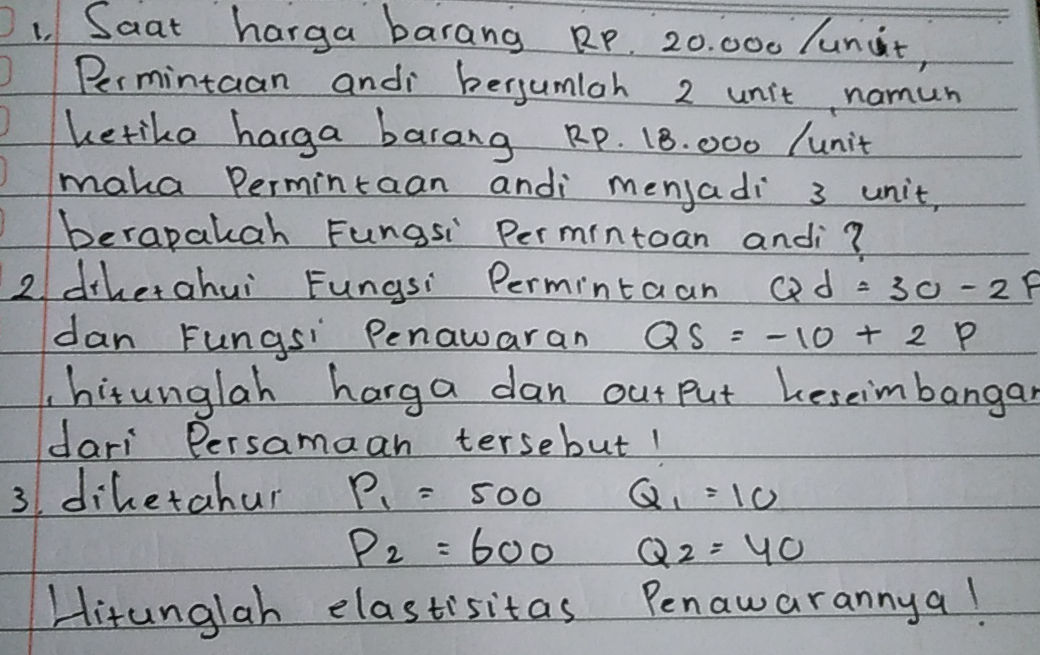 1. Saat harga barang RP. 20.000 /unit,
Permintaan andi berjumlah 2 unit, namun
ketika harga barang RP. 18.000 /unit
maka Permintaan andi menjadi 3 unit,
berapakah Fungsi Permintaan andi?
2. diketahui Fungsi Permintaan Qd = 30 - 2P
dan Fungsi Penawaran QS = -10 + 2 P
, hitunglah harga dan output keseimbangan
dari Persamaan tersebut!
3. diketahui P1 = 500 Q1 = 10
P2 = 600 Q2 = 40
Hitunglah elastisitas Penawarannya!